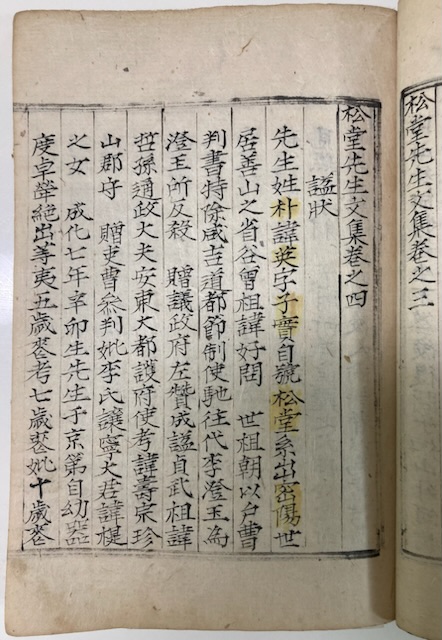 松堂先生文集卷之三
松堂先生文集卷之四
謚狀
先生姓朴諱英字子實自號松堂系出密陽世
居善山之省谷曾祖諱好問 世祖朝以戶曹
判書特除咸吉道都節制使馳往代李澄玉爲
澄玉所反殺 贈議政府左贊成謚貞武祖諱
哲孫通政大夫安東大都護府使考諱壽宗珍
山郡守 贈吏曹叅判妣李氏讓寧大君諱禔
之女 成化七年辛卯生先生于京第自幼器
度卓犖絶出等夷五歲喪考七歲喪妣十歲喪